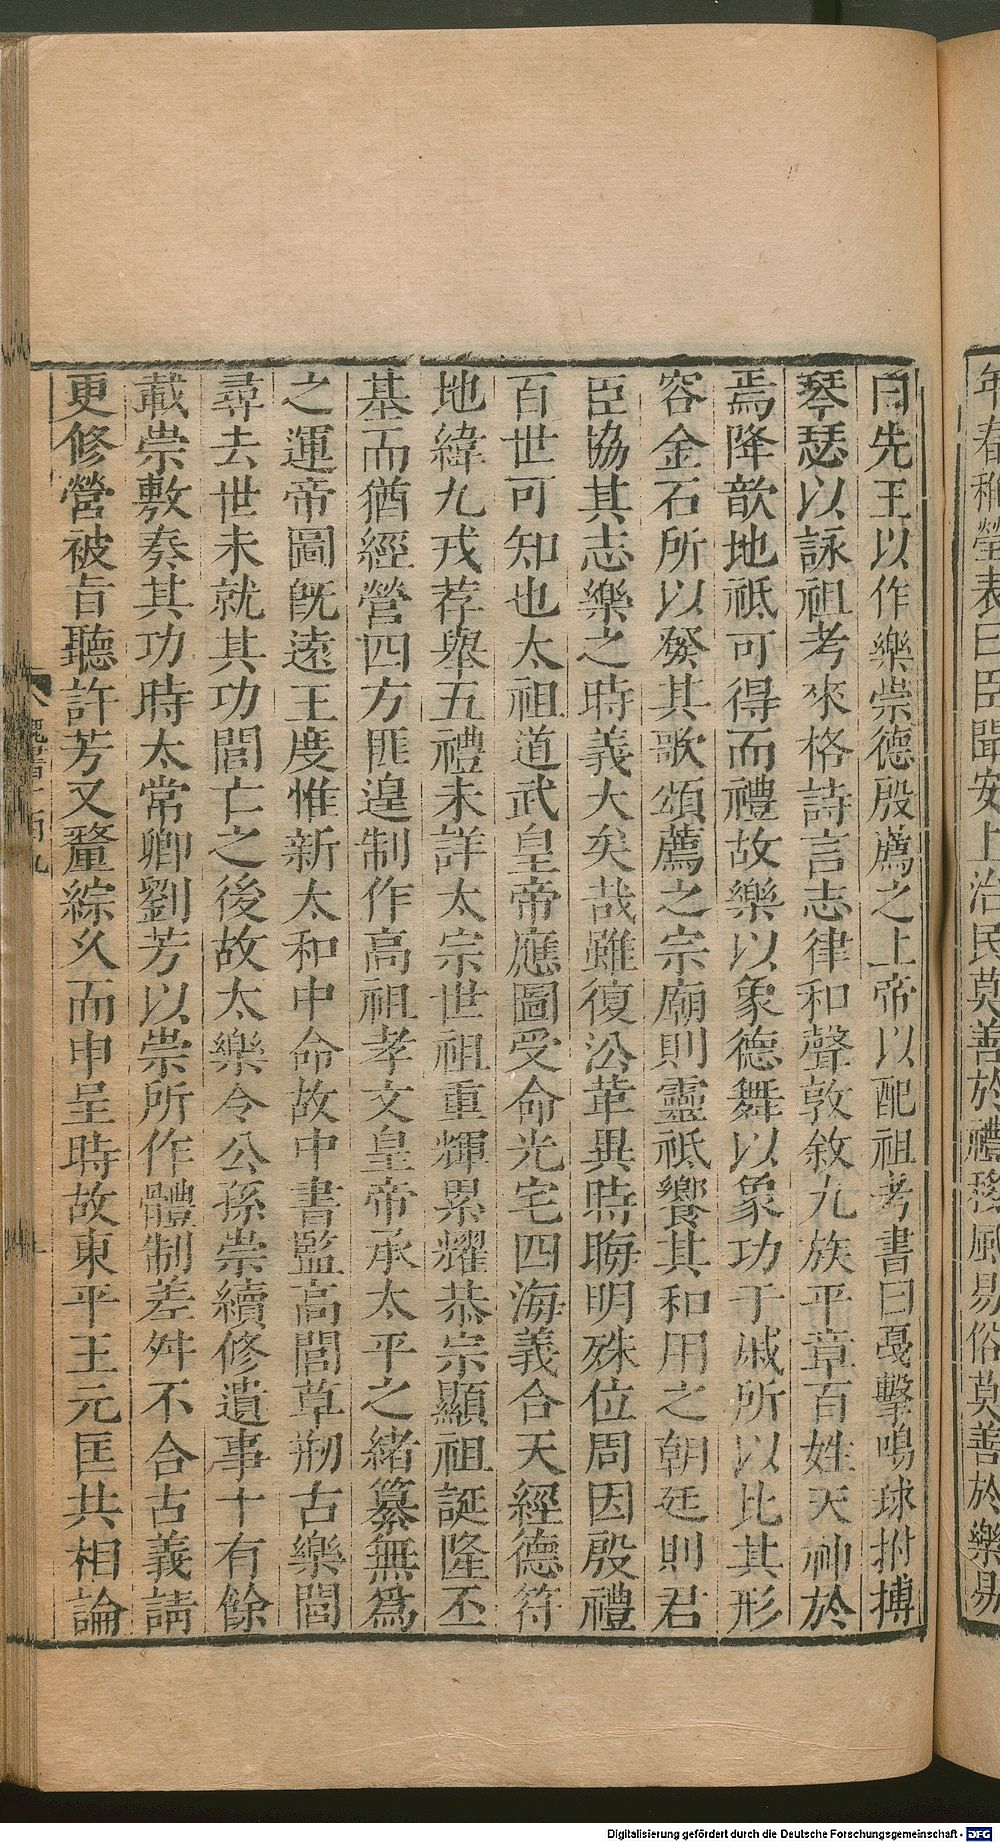 年春稚瑩表曰臣聞安上治民莫善於禮移風易俗莫善於樂易
曰先王以作樂崇德殷薦之上帝以配祖考書曰戞擊鳴球拊搏
琴瑟以詠祖考來格詩言志律和聲敦敘九族平章百姓天神於
焉降歆地祇可得而禮故樂以象德舞以象功干戚所以比其形
容金石所以發其歌頌薦之宗廟則靈祇饗其和用之朝廷則君
臣協其志樂之時義大矣哉雖復沿革異時晦明殊位周因殷禮
百世可知也太祖道武皇帝應圖受命光宅四海義合天經德符
地緯九戎荐舉五禮未詳太宗世祖重輝累耀恭宗顯祖誕隆丕
基而猶經營四方匪遑制作高祖孝文皇帝承太平之緒纂無爲
之運帝圖旣遠王度惟新太和中命故中書監高閭草刱古樂閭
尋去世未就其功閭亡之後故太樂令公孫崇續修遺事十有餘
載崇敷奏其功時太常卿劉芳以崇所作體制差舛不合古義請
更修營被旨聽許芳又釐綜久而申呈時故東平王元匡共相論
魏書一百九
Digitalisierung gefördert durch die Deutsche Forschungsgemeinschaft - DFG